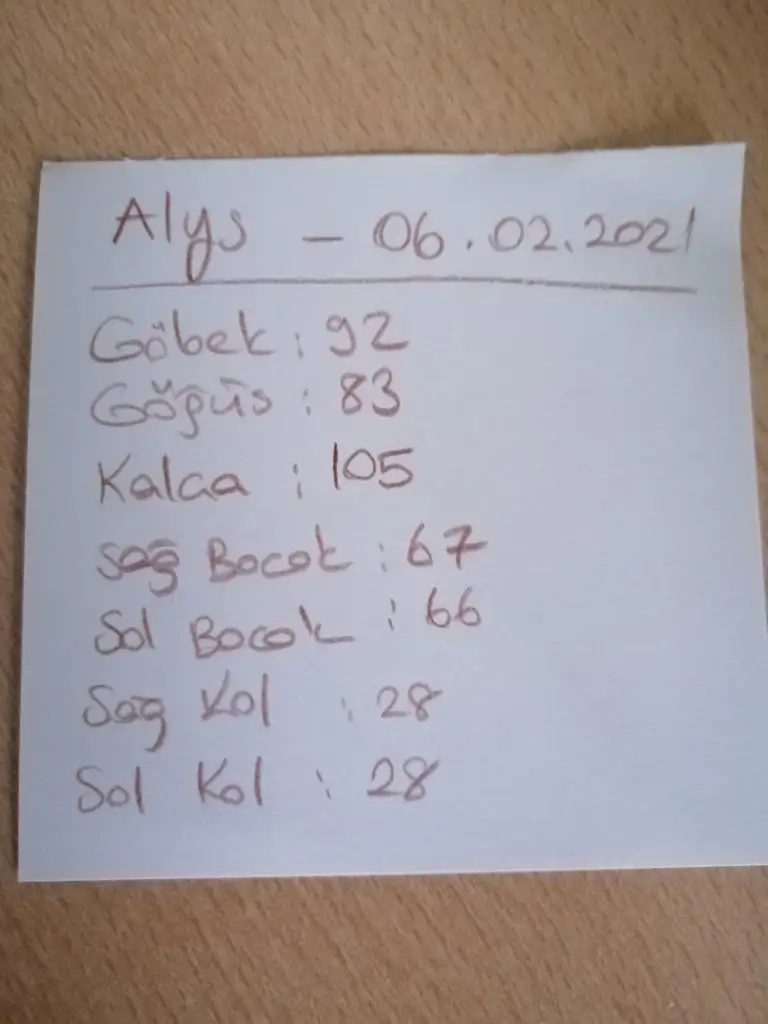 Alys - 06.02.2021
Göbek : 92
Göğüs : 83
Kalça : 105
Sağ Bacak : 67
Sol Bacak : 66
Sağ Kol : 28
Sol Kol : 28